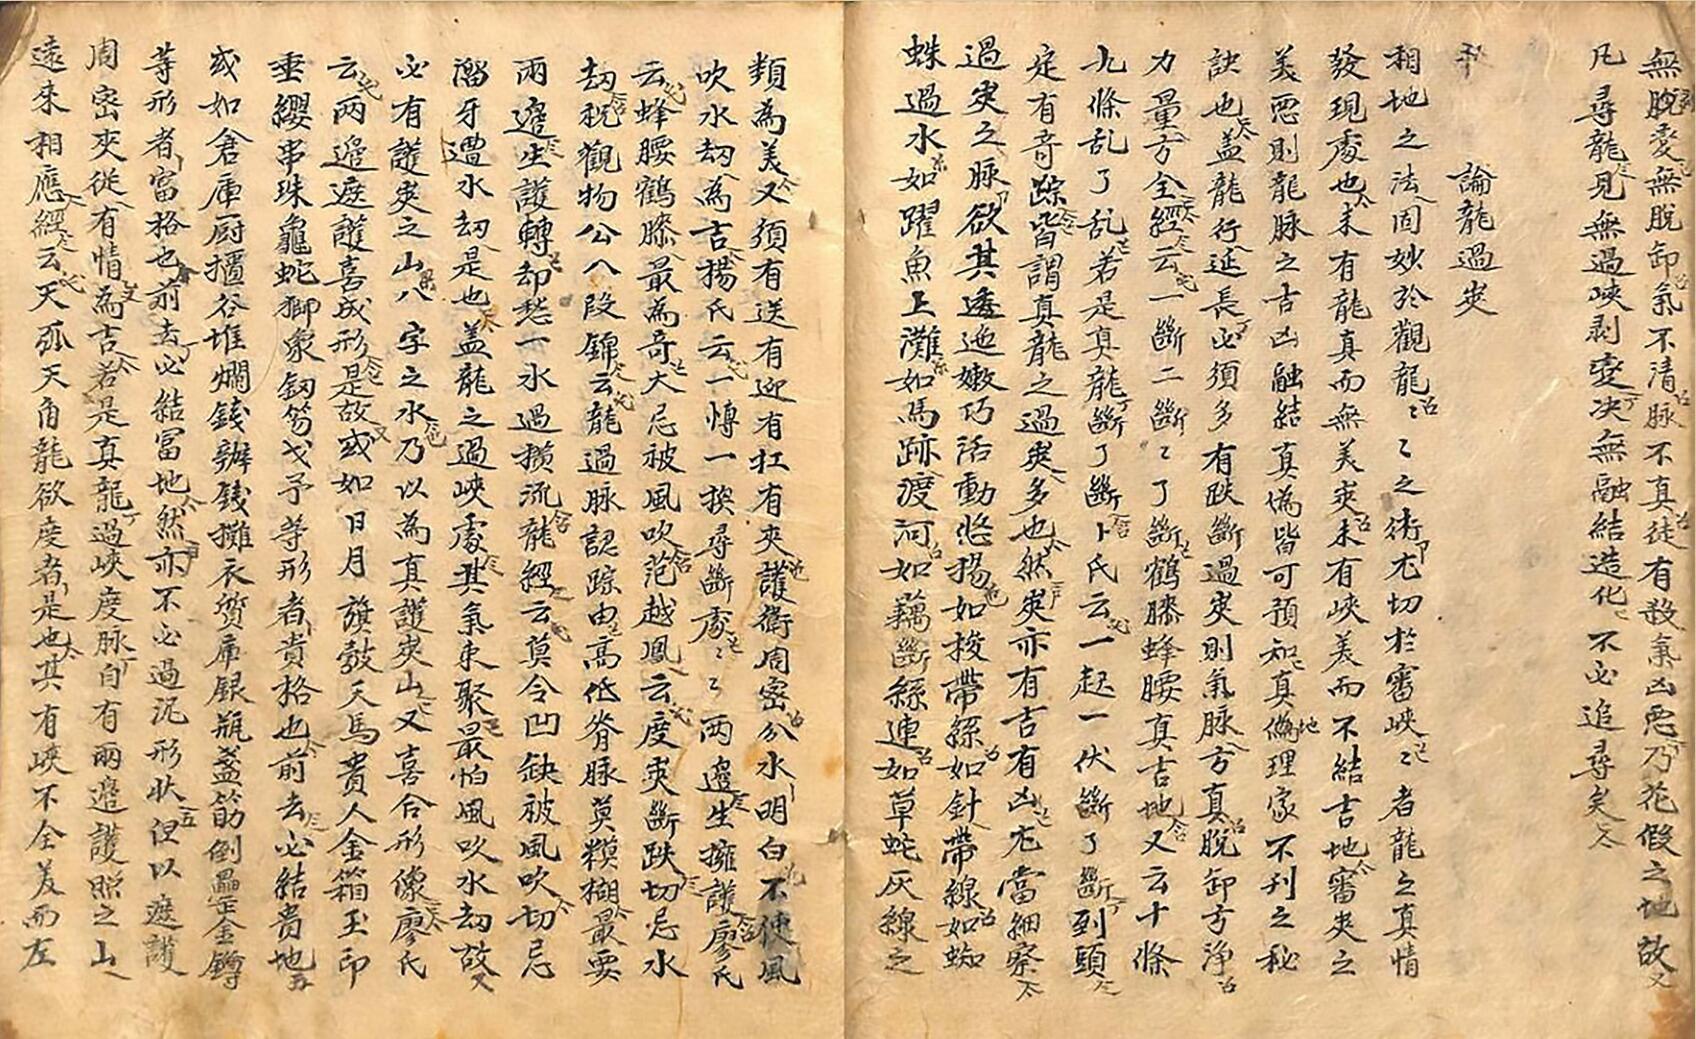 無脫變無脫卸氣不清脉不真徒有殺氣凶惡乃花假之地故
凡尋龍見無過峽剥變决無融結造化不必追尋矣
論龍過夾
相地之法固妙於觀龍〻〻之術尤切於審峽〻者龍之真情
發現處也未有龍真而無美夾未有峽美而不結吉地審夾之
美惡則龍脉之吉凶融結真偽皆可預知真偽地理家不刋之秘
訣也盖龍行延長必須多有跌斷過夾則氣脉方真脫卸方净
力量方全經云一斷二斷〻了斷鶴膝蜂腰真吉地又云十條
九條乱了乱若是真龍斷了斷卜氏云一起一伏斷了斷到頭
定有竒踪皆謂真龍之過夾多也然夾亦有吉有凶尤當細察
過夾之脉欲其透迤嫩巧活動悠揚如梭帶絲如針帶線如蜘
蛛過水如躍魚上灘如馬跡渡河如藕斷絲連如草蛇灰線之
類為美又須有送有迎有扛有夾護衛周密分水明白不使風
吹水刼為吉楊氏云一愽一換尋斷處〻〻兩邉生擁護廖氏
云蜂腰鶴膝最為竒大忌被風吹范越鳳云度夾斷跌切忌水
刼税觀物公八段錦云龍過脉認踪由高低脊脉莫糢糊最要
兩邉生護轉却愁一水過攅流龍經云莫令凹缺被風吹切忌
溜牙遭水刼是也盖龍之過峽處其氣束聚最怕風吹水刼故
必有護夾之山八字之水乃以為真護夾山又喜合形像廖氏
云兩邉遮護喜成形是故或如日月旗鼓天馬貴人金箱玉印
垂纓串珠龜蛇獅象劔笏戈予等形者貴格也前去必結貴地
或如倉庫厨櫃谷堆爛錢辮錢攤衣質庫銀瓶盞筯倒盅金罇
等形者富格也前去必結富地然亦不必過泥形状但以遮護
周密夾從有情為吉若是真龍過峽度脉自有兩邉護照之山
遠來相應經云天弧天角龍欲度者是也其有峽不全美而左